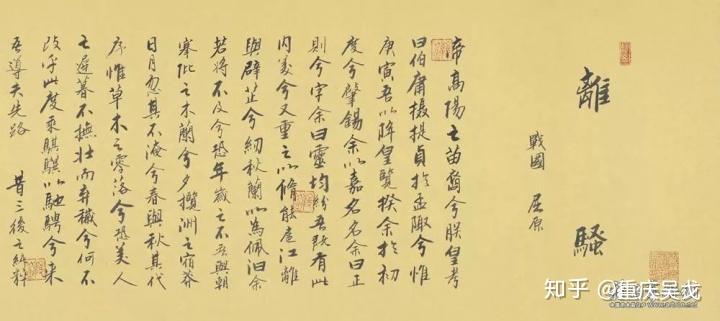 離騷
戰國 屈原
帝高陽之苗裔兮朕皇考
曰伯庸攝提貞於孟陬兮惟
庚寅吾以降皇覽揆余於初
度兮肇錫余以嘉名名余曰正
則兮字余曰靈均紛吾既有此
内美兮又重之以脩能扈江離
與辟芷兮紉秋蘭以為佩汩余
若將不及兮恐年歲之不吾與朝
搴阰之木蘭兮夕攬洲之宿莽
日月忽其不淹兮春與秋其代
序惟草木之零落兮恐美人
之遲暮不撫壯而棄穢兮何不
改乎此度乘騏驥以馳騁兮来
吾導夫先路 昔三後之純粹
知乎 @重庆吴戈